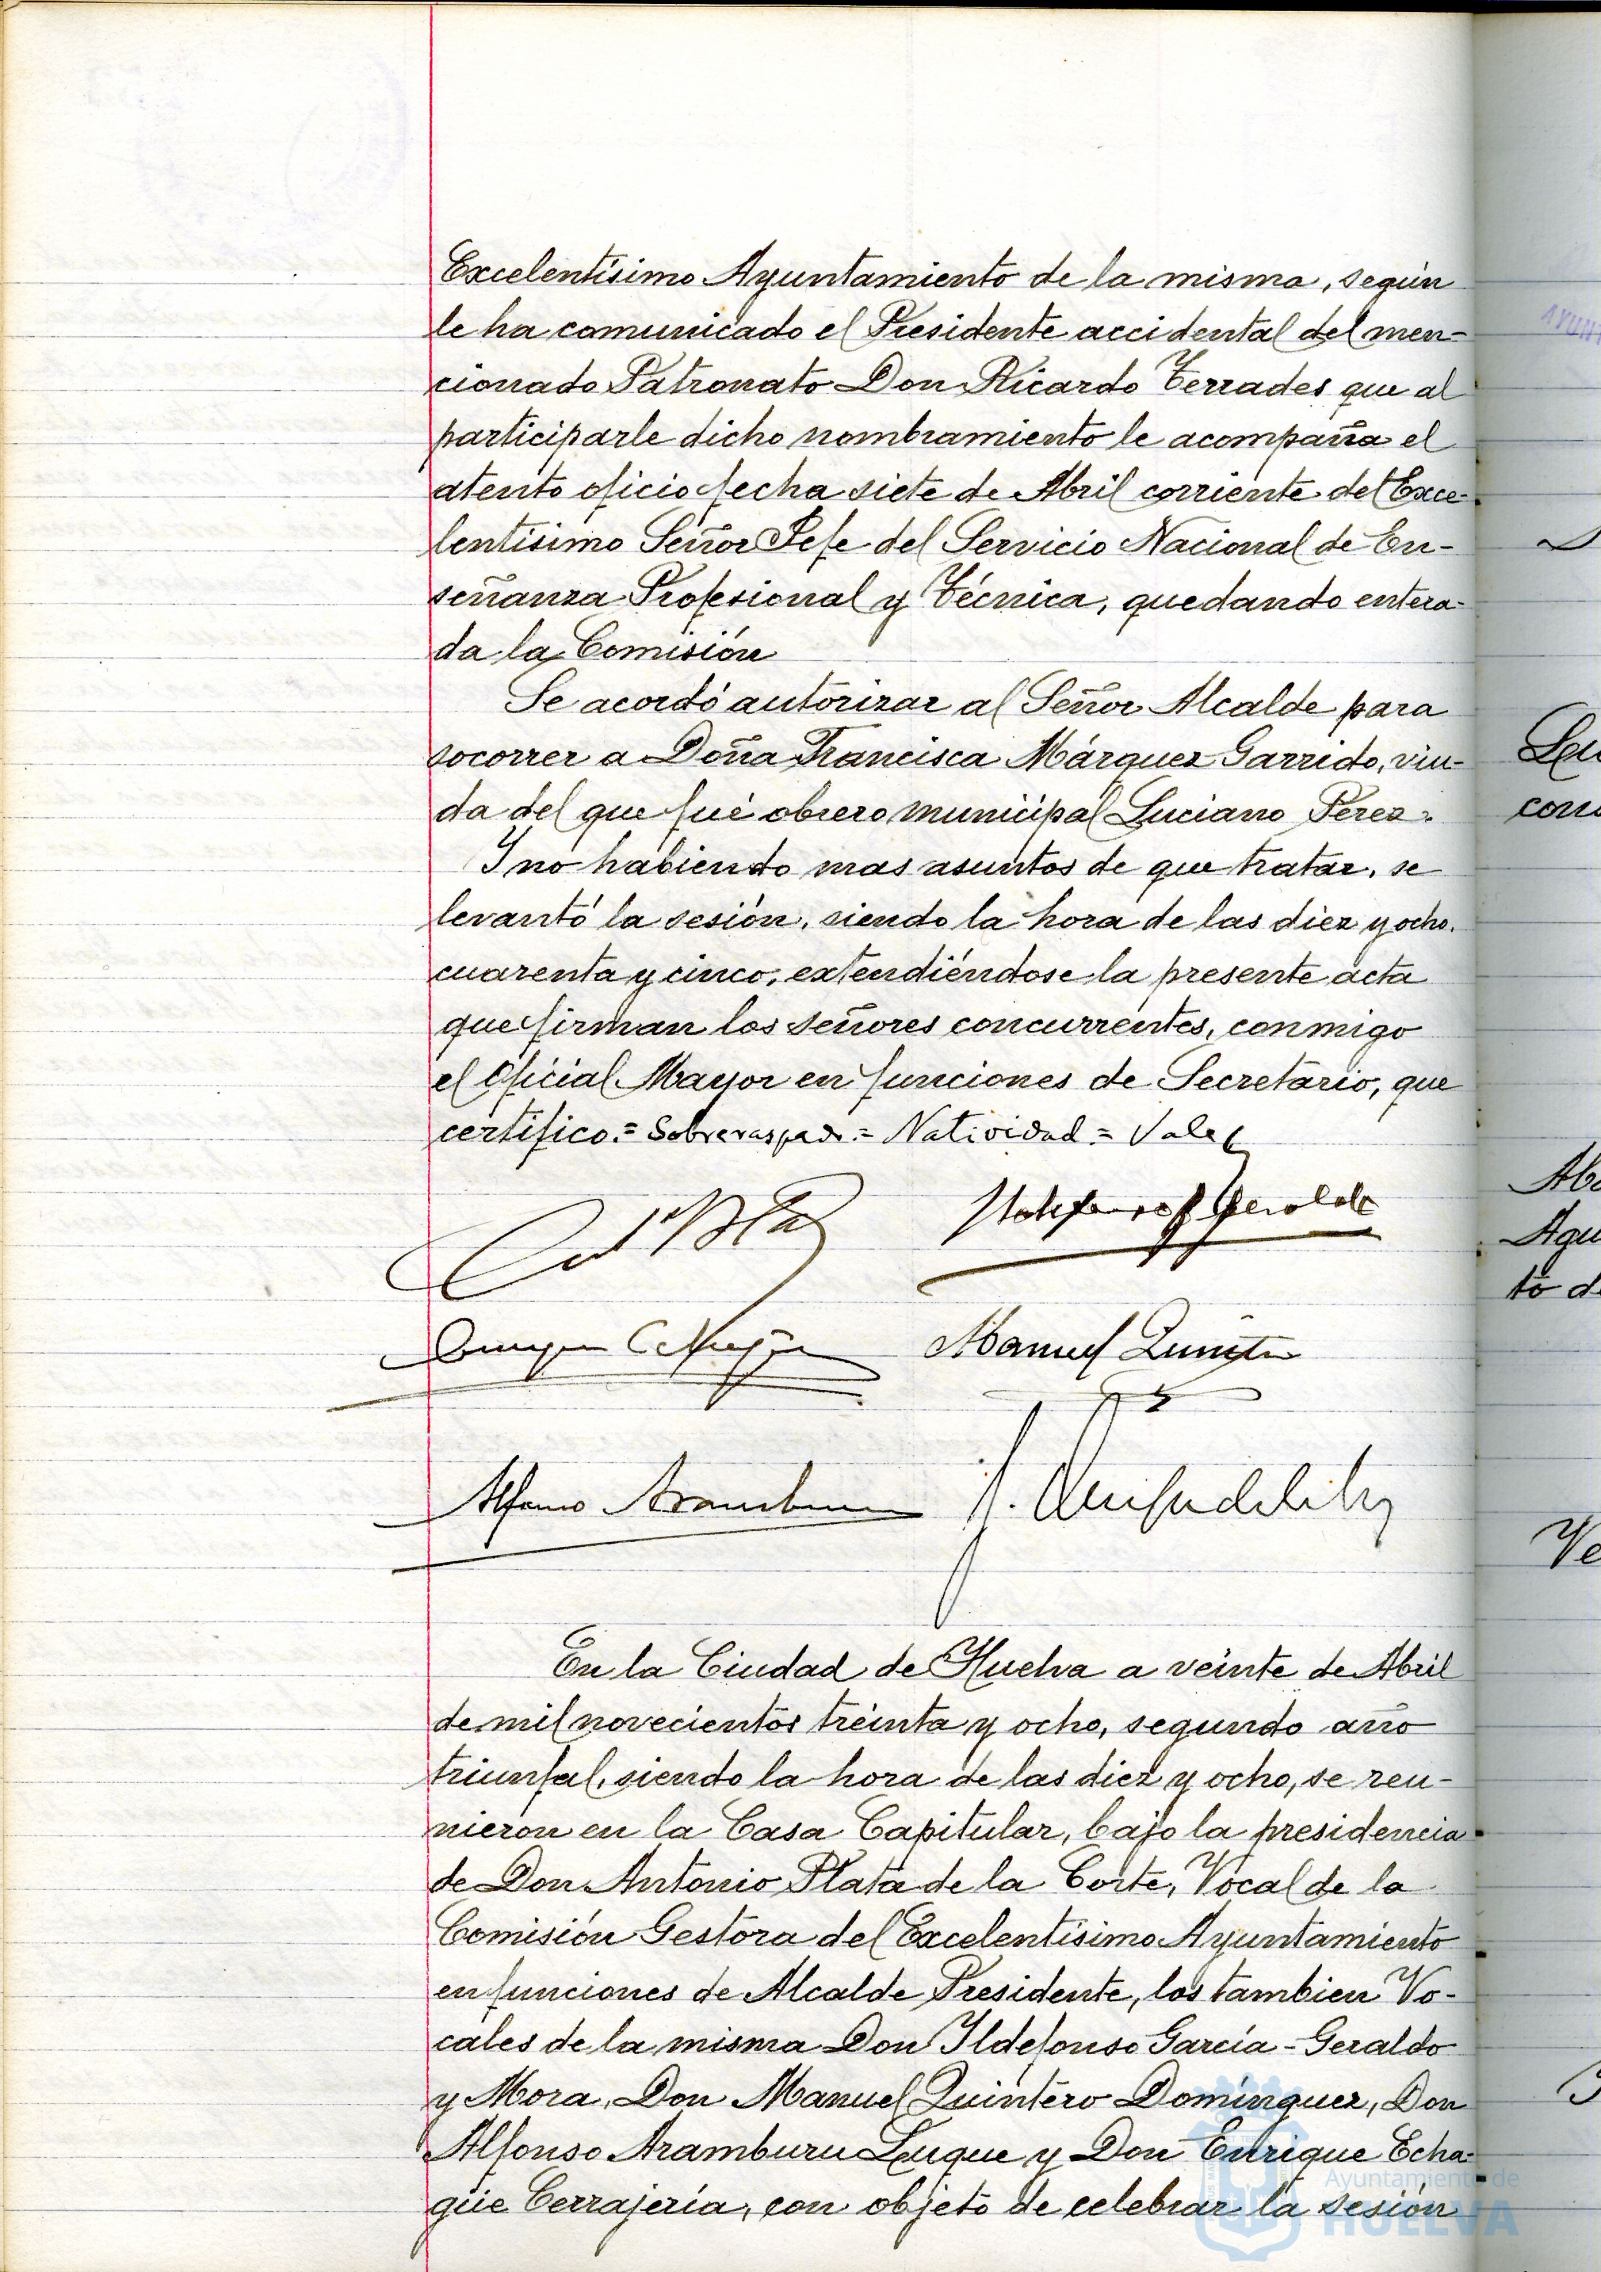 Excelentísimo Ayuntamiento de la misma, según
le ha comunicado el Presidente accidental del men-
cionado Patronato Don Ricardo Terrades que al
participarle dicho nombramiento le acompaña el
atento oficio fecha siete de Abril corriente del Exce-
lentísimo Señor Jefe del Servicio Nacional de En-
señanza Profesional y Técnica, quedando entera-
da la Comisión
Se acordó autorizar al Señor Alcalde para
socorrer a Doña Francisca Márquez Garrido, viu-
da del que fué obrero municipal Luciano Pérez.
Y no habiendo mas asuntos de que tratar, se
levantó la sesión, siendo la hora de las diez y ocho,
cuarenta y cinco, extendiéndose la presente acta
que firman los señores concurrentes, conmigo
el Oficial Mayor en funciones de Secretario, que
certifico.= Sobreraspado.= Natividad = Vale
Manuel Quintero
Alfonso Aramburu
En la Ciudad de Huelva a veinte de Abril
de mil novecientos treinta y ocho, segundo año
triunfal, siendo la hora de las diez y ocho, se reu-
nieron en la Casa Capitular, bajo la presidencia
de Don Antonio Plata de la Corte, Vocal de la
Comisión Gestora del Excelentísimo Ayuntamiento
en funciones de Alcalde Presidente, los tambien Vo-
cales de la misma Don Ildefonso García-Geraldo
y Mora, Don Manuel Quintero Domínguez, Don
Alfonso Aramburu Luque y Don Enrique Echa-
güe Cerrajería, con objeto de celebrar la sesión
Ayuntamiento de
HUELVA